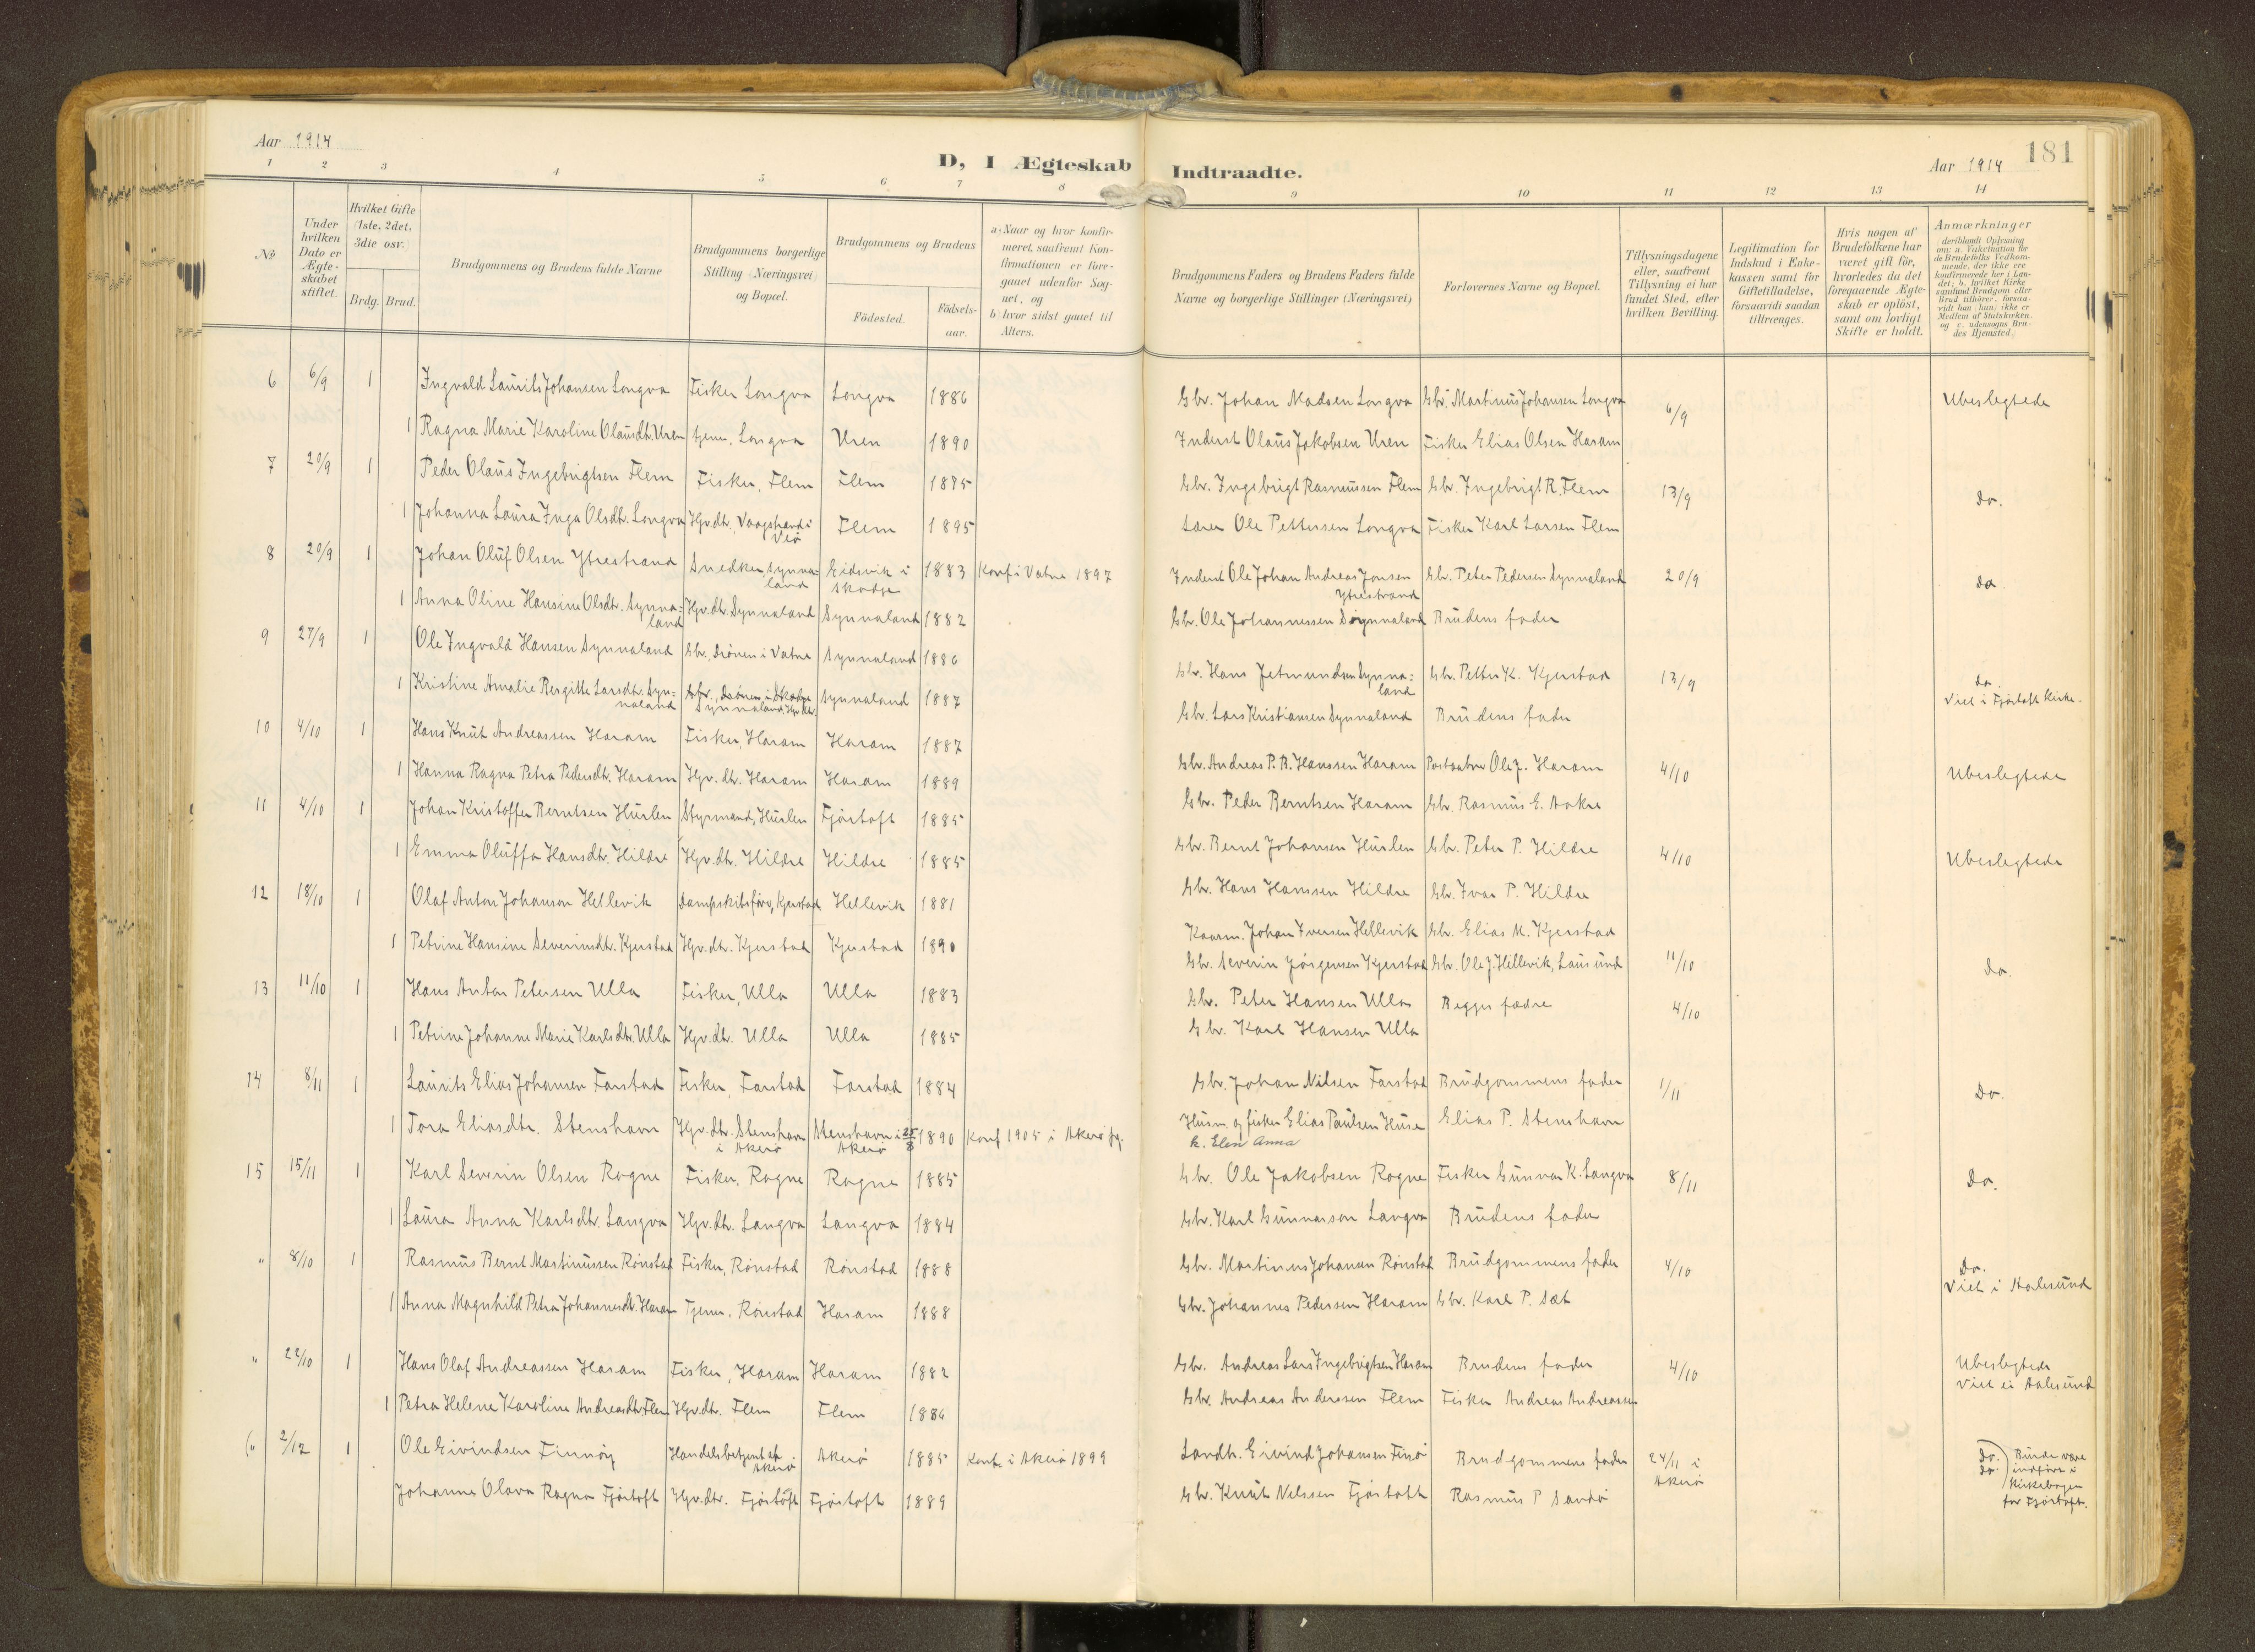 Aar 1914
D, I Ægteskab Indtraadte.
Aar 1914
181
1 2 3 4 5 6 7 8 9 10 11 12 13 14
No
Under hvilken Dato er Ægteskabet stiftet.
Hvilket Gifte (1ste, 2det, 3die osv.)
Brdg. Brud.
Brudgommens og Brudens fulde Navne
Brudgommens borgerlige Stilling (Næringsvei) og Bopæl.
Brudgommens og Brudens
Födested.
Födselsaar.
a) Naar og hvor konfirmeret, saafremt Konfirmationen er foregaaet udenfor Sognet, og
b) hvor sidst gaaet til Alters.
Brudgommens Faders og Brudens Faders fulde Navne og borgerlige Stillinger (Næringsvei)
Forlovernes Navne og Bopæl.
Tillysningsdagene eller, saafremt Tillysning ei har fundet Sted, efter hvilken Bevilling.
Legitimation for Indskud i Enkekassen samt for Giftetilladelse, forsaavidt saadan tiltrænges.
Hvis nogen af Brudefolkene har været gift för, hvorledes da det foregaaende Ægteskab er oplöst, samt om lovligt Skifte er holdt.
Anmærkninger
deriblandt Oplysning om: a. Vakcination for de Brudefolks Vedkommende, der ikke ere konfirmerede her i Landet; b. hvilket Kirkesamfund Brudgom eller Brud tilhörer, forsaavidt han (hun) ikke er Medlem af Statskirken, og c. udensogns Brudes Hjemsted.
6 6/9 1 Ingvald Laurits Johansen Longva Fisker Longva Longva 1886 Gbr. Johan Madsen Longva Gbr. Martinus Johansen Longva 6/9 Ubeslegtede
1 Ragna Marie Karoline Olausdtr. Uren tjener, Longva Uren 1890 Inderst Olaus Jakobsen Uren Fisker Elias Olsen Haram
7 20/9 1 Peder Olaus Ingebrigtsen Flem Fisker, Flem Flem 1885 Gbr. Ingebrigt Rasmussen Flem Gbr. Ingebrigt R. Flem 13/9 do.
1 Johanna Laura Inga Olsdtr. Longva Hjv.dtr. Vaagstrand i Veö Flem 1895 Lærer Ole Pettersen Longva Fisker Karl Larsen Flem
8 20/9 1 Johan Oluf Olsen Ytrestrand Snedker, Synnaland Eidsvik i Skodje 1883 Konf i Vatne 1897 Inderst Ole Johan Andreas Jonsen Ytrestrand Gbr. Peter Pedersen Synnaland 20/9 do
1 Anna Oline Hansine Olsdtr. Synnaland Hjv.dtr. Synnaland Synnaland 1882 Gbr. Ole Johannessen Synnaland Brudens fader
9 27/9 1 Ole Ingvald Hansen Synnaland Gbr., Drönen i Vatne Synnaland 1886 Gbr. Hans Jetmundsen Synnaland Gbr. Petter K. Kjerstad 13/9 do. Viet i Fjörtoft Kirke.
1 Kristine Amalie Bergitte Larsdtr. Synnaland Synnaland Hjv.dtr. Synnaland 1887 Gbr. Lars Kristiansen Synnaland Brudens fader
10 4/10 1 Hans Knut Andreassen Haram Fisker, Haram Haram 1887 Gbr. Andreas P. B. Hanssen Haram Postaabner Ole J. Haram 4/10 Ubeslegtede
1 Hanna Ragna Petra Pedersdtr. Haram Hjv. dtr. Haram Haram 1889 Gbr. Peder Berntsen Haram Gbr. Rasmus E. Aakre
11 4/10 1 Johan Kristoffer Berntsen Huslen Styrmand, Huslen Fjörtoft 1885 Gbr. Bernt Johansen Huslen Gbr. Peter P. Hildre 4/10 Ubeslegtede
1 Emma Oluffa Hansdtr. Hildre Hjv.dtr. Hildre Hildre 1885 Gbr. Hans Hanssen Hildre Gbr. Ivar P. Hildre
12 18/10 1 Olaf Anton Johanson Hellevik Dampskibsförer, Kjerstad Hellevik 1881 Kaarm. Johan Iversen Hellevik Gbr. Elias M. Kjerstad 11/10 do.
1 Petrine Hansine Severinsdtr. Kjerstad Hjv.dtr. Kjerstad Kjerstad 1890 Gbr. Severin Jörgensen Kjerstad Gbr. Ole J. Hellevik, Lausund
13 11/10 1 Hans Anton Petersen Ulla Fisker, Ulla Ulla 1883 Gbr. Peter Hansen Ulla Begges fædre 4/10
1 Petrine Johanne Marie Karlsdtr. Ulla Hjv.dtr. Ulla Ulla 1885 Gbr. Karl Hansen Ulla
14 8/11 1 Laurits Elias Johansen Farstad Fisker, Farstad Farstad 1884 Gbr. Johan Nilsen Farstad Brudgommens fader 1/11 Do.
1 Tora Eliasdtr. Stenshavn Hjv.dtr. Stenshavn i Akerö Stenshavn i Akerö 25/8 1890 Konf 1905 i Akerö Husm. og fisker Elias Paulsen Huse k. Elen Anna Elias P. Stenshavn
15 15/11 1 Karl Severin Olsen Rogne Fisker, Rogne Rogne 1885 Gbr. Ole Jakobsen Rogne Fisker Gunvar K. Langva 8/11 Do.
1 Laura Anna Karlsdtr. Langva Hjv.dtr. Langva Langva 1884 Gbr. Karl Gunnarson Langva Brudens fader
" 8/10 1 Rasmus Bernt Martinussen Rönstad Fisker, Rönstad Rönstad 1888 Gbr. Martinus Johansen Rönstad Brudgommens fader 4/10 Do. Viet i Aalesund
1 Anna Magnhild Petra Johannesdtr. Haram Tjener. Rönstad Haram 1888 Gbr. Johannes Pedersen Haram Gbr. Karl P. Sæt
" 22/10 1 Hans Olaf Andreassen Haram Fisker, Haram Haram 1882 Gbr. Andreas Lars Ingebrigtsen Haram Brudens fader 4/10 Ubeslegtede Viet i Aalesund
1 Petra Helene Karoline Andreasdtr. Flem Hjv.dtr. Flem Flem 1886 Gbr. Andreas Anderssen Flem Fisker Andreas Andreassen
" 2/12 1 Ole Eivindsen Finnöy Handelsbetjent Akerö Akerö 1885 Konf. i Akerö 1899 Landh. Eivind Johansen Finö Brudgommens fader 24/11 i Akerö Do. do. indfört i Kirkebogen for Fjörtoft.
Johanne Olava Ragna Fjörtoft Hjv.dtr. Fjörtoft Fjörtoft 1889 Gbr. Knut Nelssen Fjörtoft Rasmus P Sandö